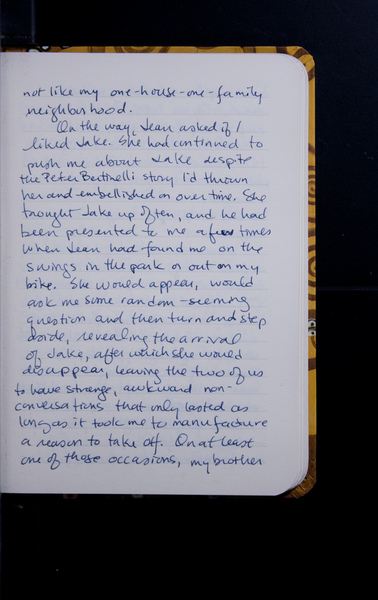 not like my one-house-one-family
neighborhood.
On the way, Jean asked if I
liked Jake. She had continued to
push me about Jake despite
the Peter Bertinelli story I'd thrown
her and embellished on over time. She
brought Jake up often, and he had
been presented to me a few times
when Jean had found me on the
swings in the park or out on my
bike. She would appear, would
ask me some random-seeming
question and then turn and step
aside, revealing the arrival
of Jake, after which she would
disappear, leaving the two of us
to have strange, awkward non-
conversations that only lasted as
long as it took me to manufacture
a reason to take off. On at least
one of those occasions, my brother